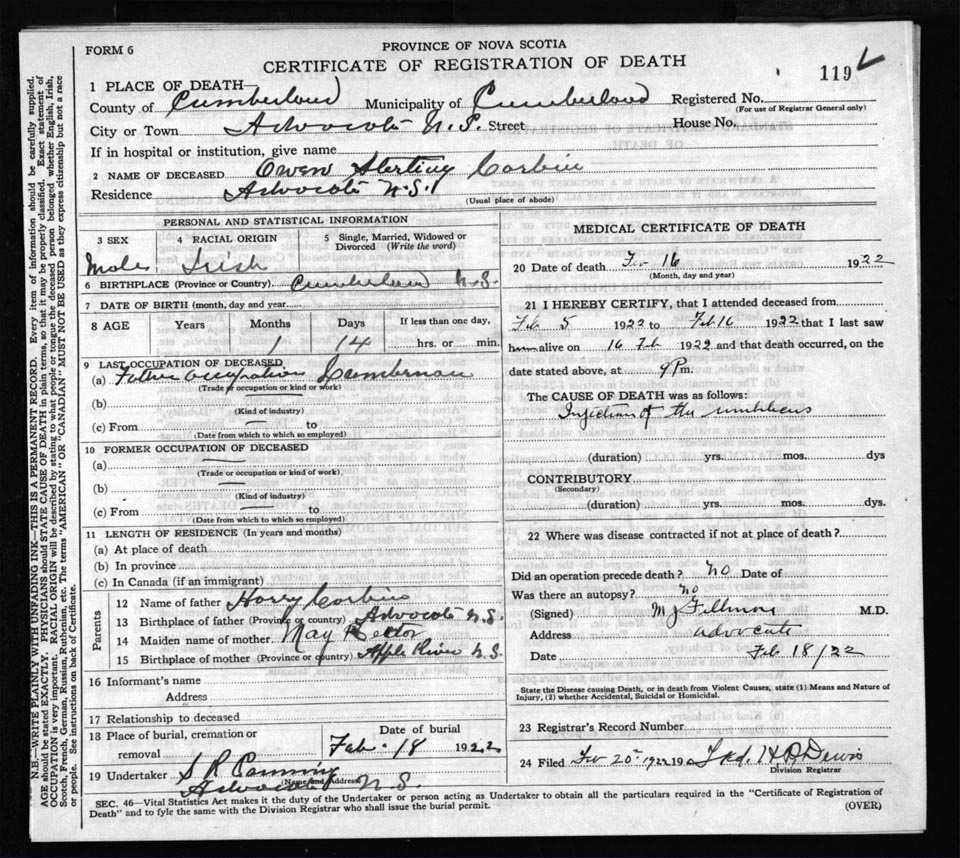 FORM 6
PROVINCE OF NOVA SCOTIA
CERTIFICATE OF REGISTRATION OF DEATH
119
1 PLACE OF DEATH—
County of Cumberland Municipality of Cumberland Registered No.
(For use of Registrar General only)
City or Town Advocate N.S. Street House No.
If in hospital or institution, give name
2 NAME OF DECEASED Owen Sterling Corbin
Residence Advocate N.S.
(Usual place of abode)
PERSONAL AND STATISTICAL INFORMATION
3 SEX 4 RACIAL ORIGIN 5 Single, Married, Widowed or Divorced (Write the word)
Male Irish
6 BIRTHPLACE (Province or Country) Cumberland N.S.
7 DATE OF BIRTH (month, day and year)
8 AGE Years Months Days If less than one day,
1 14 hrs. or min.
9 LAST OCCUPATION OF DECEASED
(a) Father occupation Lumberman
(Trade or occupation or kind of work)
(b)
(Kind of industry)
(c) From — to
(Date from which to which so employed)
10 FORMER OCCUPATION OF DECEASED
(a) —
(Trade or occupation or kind of work)
(b) —
(Kind of industry)
(c) From — to
(Date from which to which so employed)
11 LENGTH OF RESIDENCE (In years and months)
(a) At place of death
(b) In province
(c) In Canada (if an immigrant)
Parents
12 Name of father Harry Corbin
13 Birthplace of father (Province or country) Advocate N.S.
14 Maiden name of mother May Rector
15 Birthplace of mother (Province or country) Apple River N.S.
16 Informant's name
Address
17 Relationship to deceased
18 Place of burial, cremation or removal
Date of burial
Feb. 18 1922
19 Undertaker S R
(Name and Address)
Advocate N.S.
MEDICAL CERTIFICATE OF DEATH
20 Date of death Feb 16 1922
(Month, day and year)
21 I HEREBY CERTIFY, that I attended deceased from
Feb 5 1922 to Feb 16 1922 that I last saw
him alive on 16 Feb 1922 and that death occurred, on the
date stated above, at 9 P m.
The CAUSE OF DEATH was as follows:
of the umbilicus
(duration) yrs. mos. dys
CONTRIBUTORY
(Secondary)
(duration) yrs. mos. dys.
22 Where was disease contracted if not at place of death?
Did an operation precede death? No Date of
Was there an autopsy? no
(Signed) M J Fillmore M.D.
Address advocate
Date Feb 18/22
State the Disease causing Death, or in death from Violent Causes, state (1) Means and Nature of
Injury, (2) whether Accidental, Suicidal or Homicidal.
23 Registrar's Record Number
24 Filed Feb 20th 1922 19
Division Registrar
SEC. 46—Vital Statistics Act makes it the duty of the Undertaker or person acting as Undertaker to obtain all the particulars required in the "Certificate of Registration of
Death" and to fyle the same with the Division Registrar who shall issue the burial permit.
(OVER)
N.B.—WRITE PLAINLY WITH UNFADING INK—THIS IS A PERMANENT RECORD. Every item of information should be carefully supplied.
AGE should be stated EXACTLY. PHYSICIANS should STATE CAUSE OF DEATH in plain terms, so that it may be properly classified. Exact statement of
OCCUPATION is very important. RACIAL ORIGIN will be described by stating to what people or tongue the deceased person belonged whether English, Irish,
Scotch, French, German, Russian, Ruthenian, etc. The terms "AMERICAN" OR "CANADIAN" MUST NOT BE USED as they express citizenship but not a race
or people. See instructions on back of Certificate.